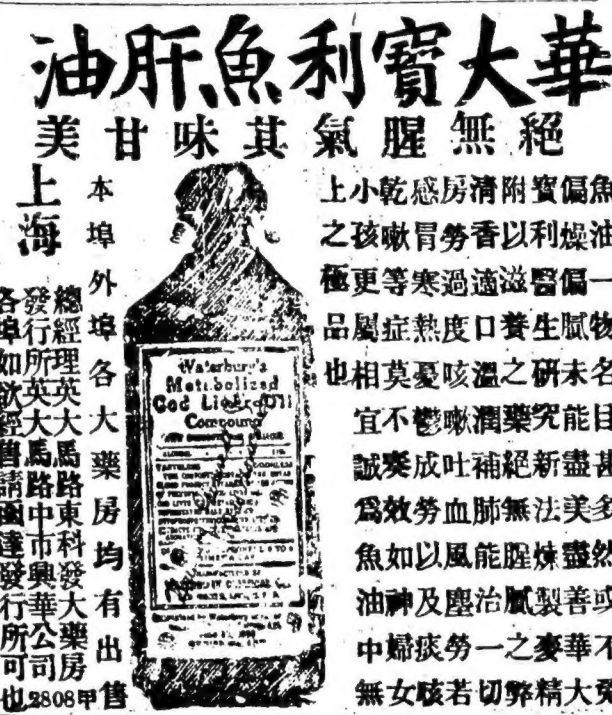 華大寶利魚肝油
絕無腥氣其味甘美
魚油一物名目甚多然或不
偏燥偏膩未能盡美盡善華大
寶利醫生研究新法煉製麥精
附以滋養之藥絕無腥膩之弊
清香適口溫潤補肺能治一切
房勞過度咳嗽吐血風塵勞若
感冒寒熱憂鬱成勞以及痰咳
乾嗽等症莫不奏效如神婦女
小孩更屬相宜誠爲魚油中無
上之極品也
Waterbury's
Metabolized
Cod Liver Oil
Compound
本埠外埠各大藥房均有出售
上海
總經理英大馬路東科發大藥房
發行所英大馬路中市興華公司
各埠如欲經售請函達發行所可也
2808甲